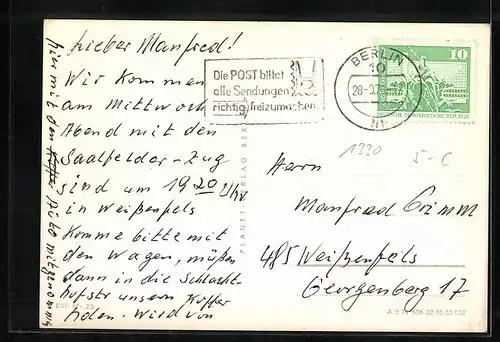 Lieber Manfred!
Wir kommen
am Mittwoch
Abend mit den
Saalfelder-Zug
sind um 19 20 Uhr
in Weißenfels
Komme bitte mit
den Wagen, müßen
dann in die Schlacht-
hofstr unsern Koffer
holen. Wird von
hin mit den Auto mitgenommen
Die POST bittet
alle Sendungen
richtig freizumachen
BERLIN
10
28-
10
DEUTSCHE DEMOKRATISCHE REPUBLIK
1330 5-C
PLANET-VERLAG BERLIN
Herrn
Manfred Grimm
485 Weißenfels
Georgenberg 17